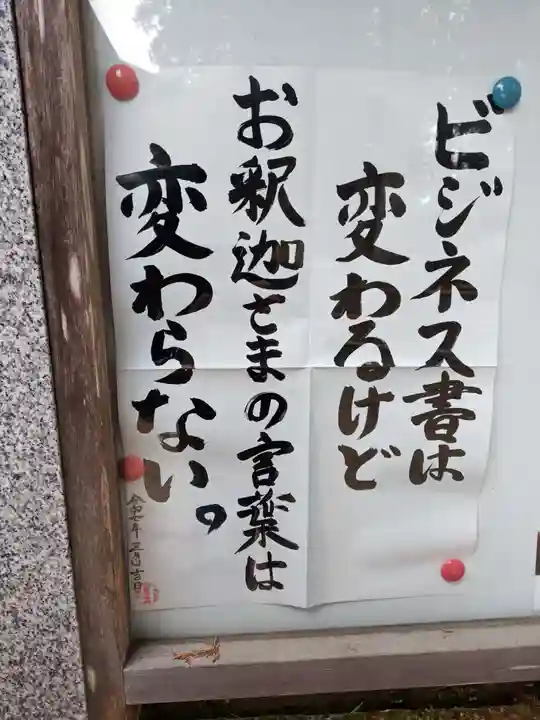 ビジネス書は
変わるけど
お釈迦さまの言葉は
変わらない。
令和七年三月吉日